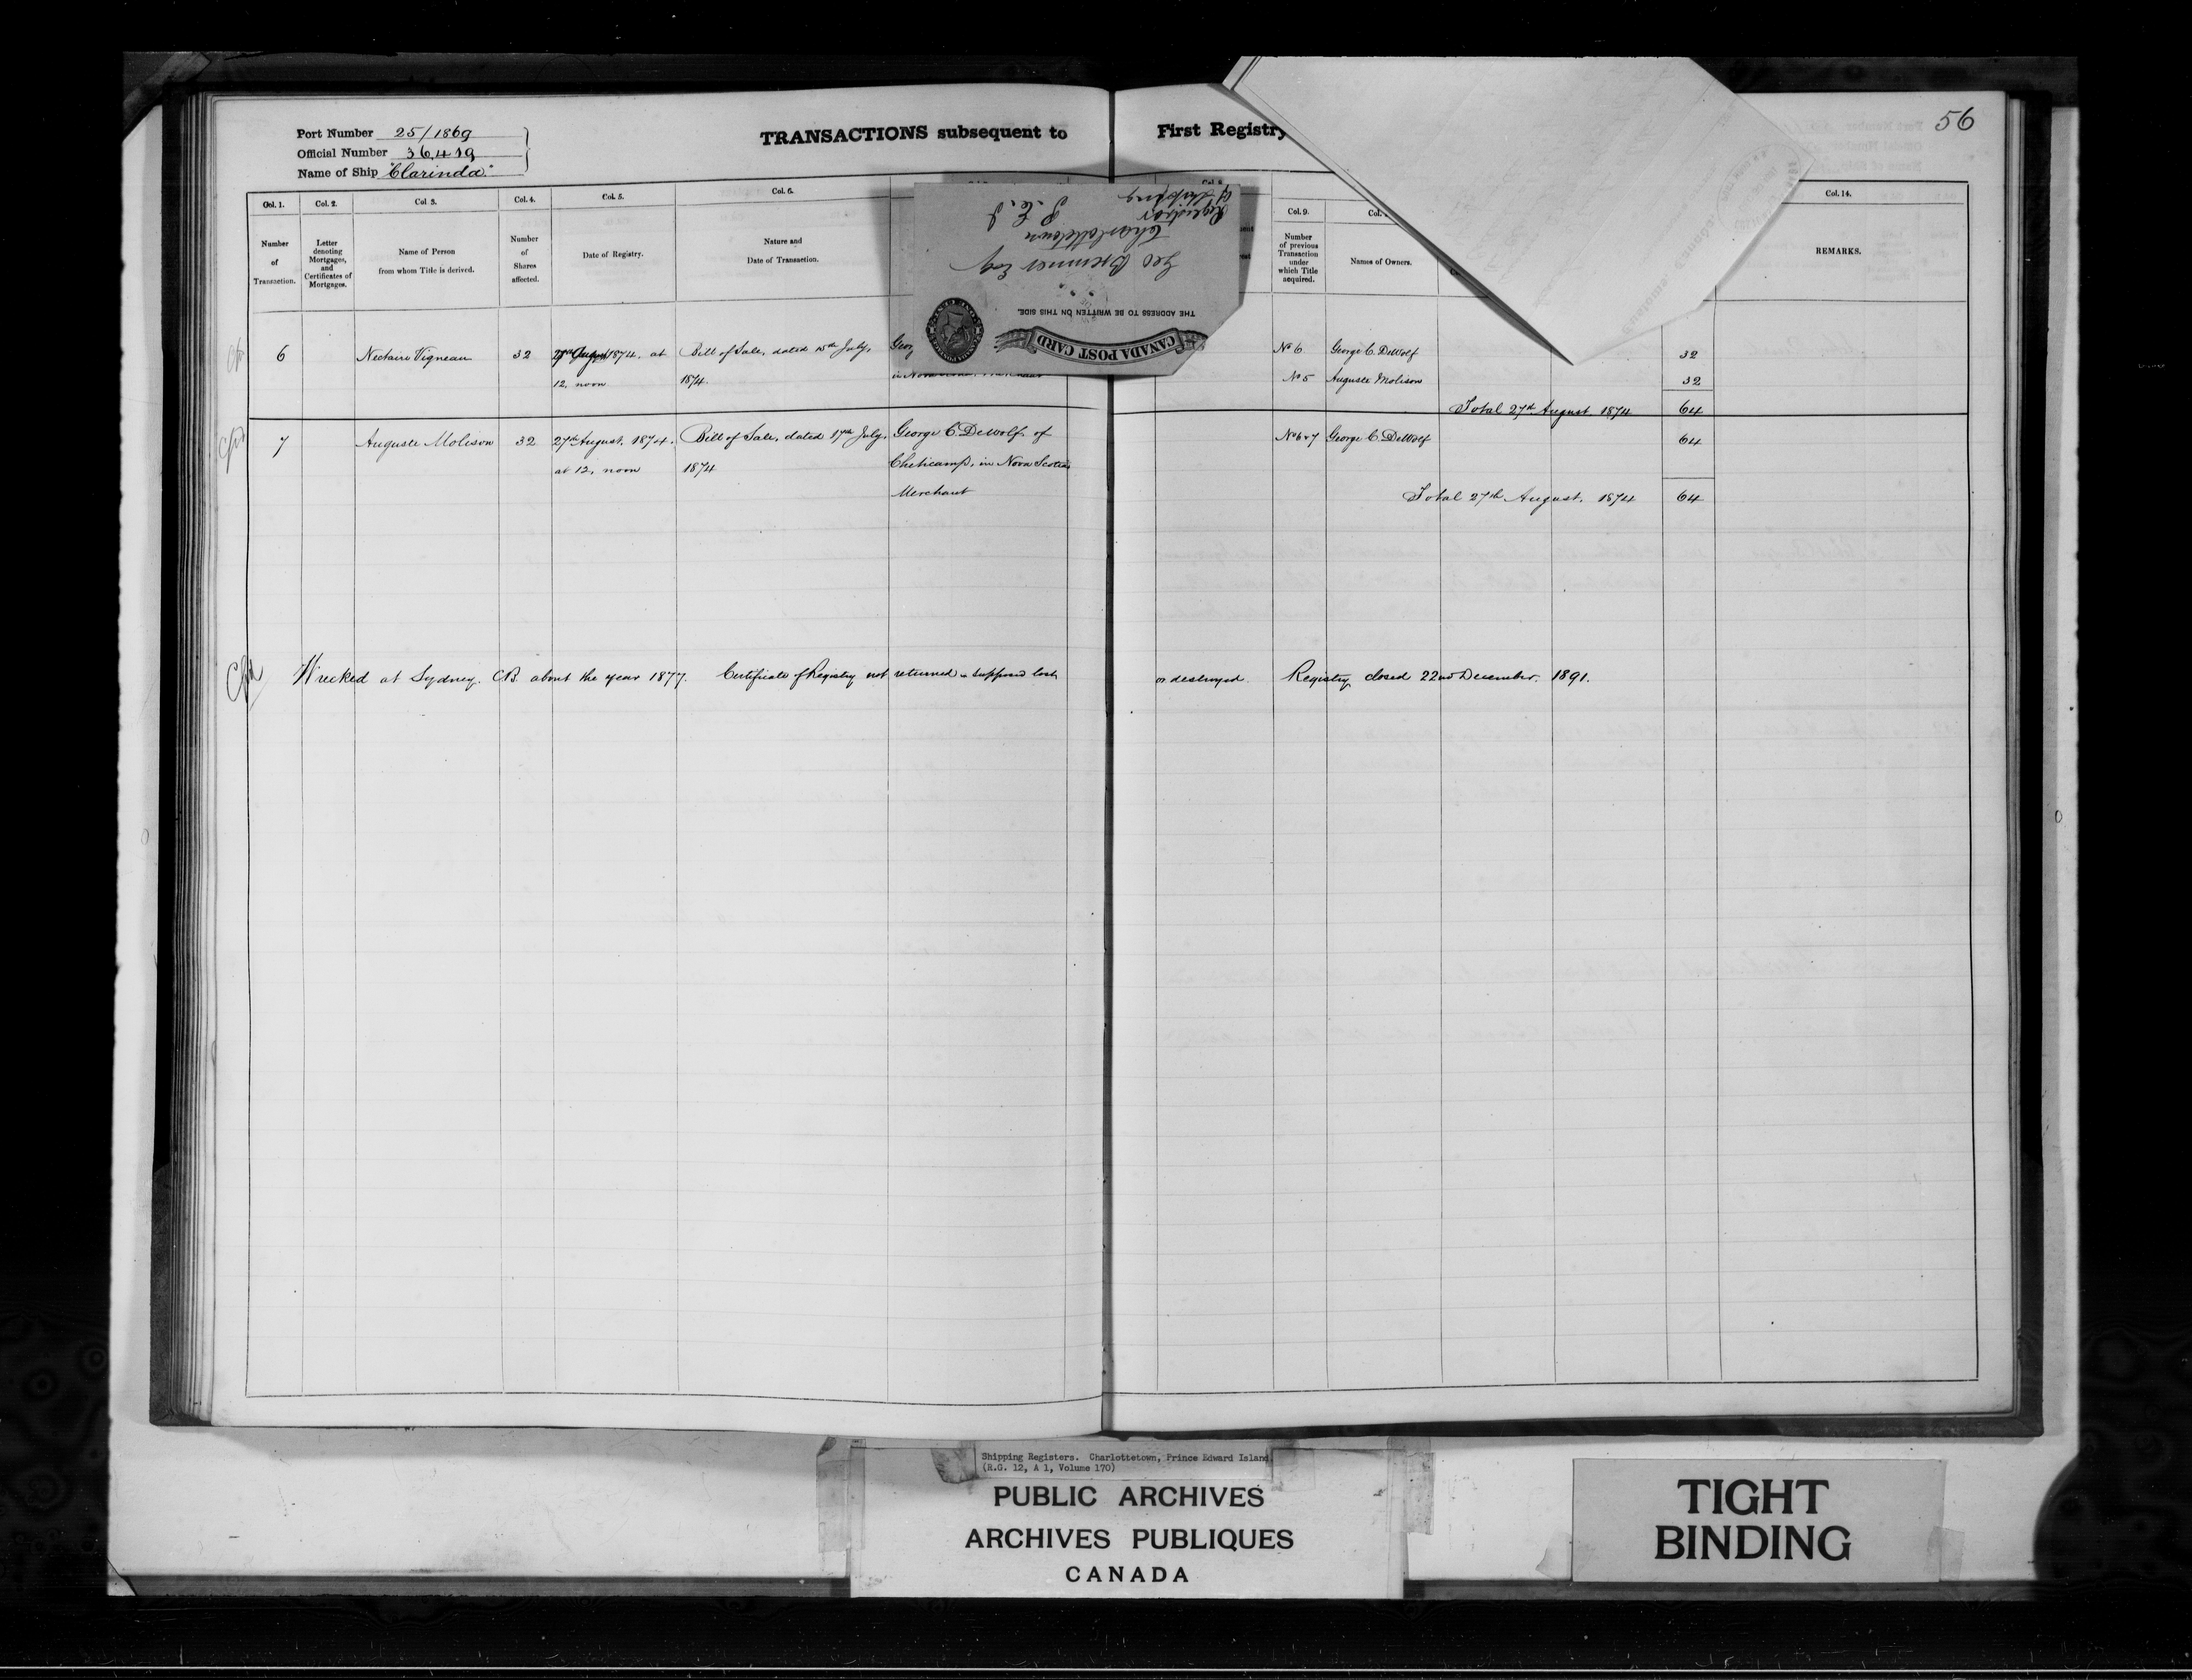 56
Port Number 25/1869
Official Number 36,419
Name of Ship "Clarinda"
TRANSACTIONS subsequent to First Registry
Col. 1. Col. 2. Col. 3. Col. 4. Col. 5. Col. 6. Col. 9. Col. 14.
Number of Transaction.
Letter denoting Mortgages, and Certificates of Mortgages.
Name of Person from whom Title is derived.
Number of Shares affected.
Date of Registry.
Nature and Date of Transaction.
Number of previous Transaction under which Title acquired.
Names of Owners.
REMARKS.
Geo Bremner Esq
Charlottetown
P. E. I
Registrar
of Shipping
THE ADDRESS TO BE WRITTEN ON THIS SIDE.
CANADA POST CARD
6 Nectaire Vigneau 32 1874. at Bill of Sale, dated 15th July, Geor No 6 George C. DeWolf 32
12, noon 1874. No 5 Auguste Molison 32
Total 27th August 1874 64
7 Auguste Molison 32 27th August, 1874. Bill of Sale, dated 17th July, George C DeWolf of No 6 & 7 George C. DeWolf 64
at 12, noon 1874 Cheticamp, in Nova Scotia
Merchant Total 27th August, 1874 64
Wrecked at Sydney. CB. about the year 1877. Certificate of Registry not returned & supposed lost or destroyed. Registry closed 22nd December. 1891.
Shipping Registers. Charlottetown, Prince Edward Island
(R.G. 12, A 1, Volume 170)
PUBLIC ARCHIVES
ARCHIVES PUBLIQUES
CANADA
TIGHT
BINDING